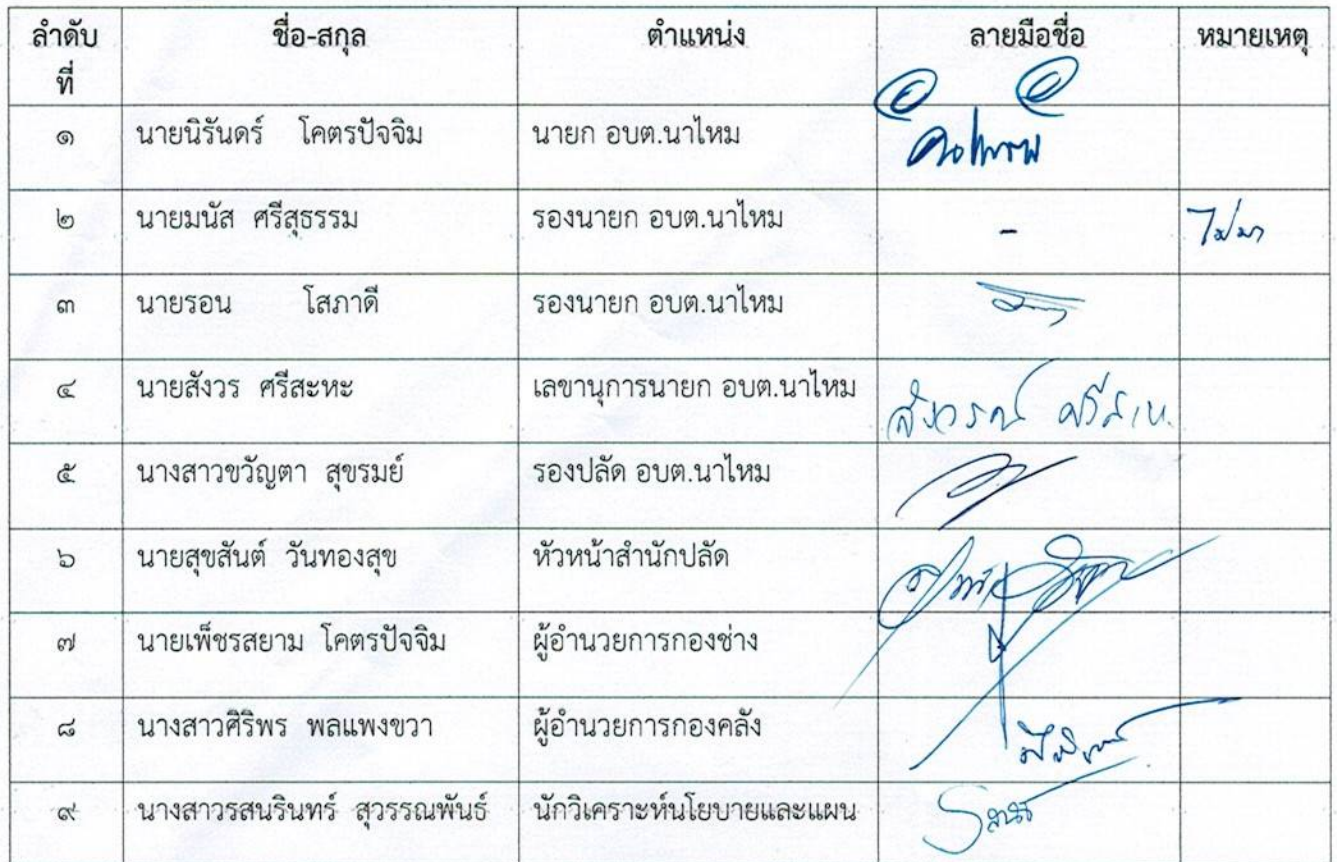 ลำดับที่ ชื่อ-สกุล ตำแหน่ง ลายมือชื่อ หมายเหตุ
๑ นายนิรันดร์ โคตรปัจจิม นายก อบต.นาไหม
๒ นายมนัส ศรีสุธรรม รองนายก อบต.นาไหม - ไม่มา
๓ นายรอน โสภาดี รองนายก อบต.นาไหม
๔ นายสังวร ศรีสะหะ เลขานุการนายก อบต.นาไหม
๕ นางสาวขวัญตา สุขรมย์ รองปลัด อบต.นาไหม
๖ นายสุขสันต์ วันทองสุข หัวหน้าสำนักปลัด
๗ นายเพ็ชรสยาม โคตรปัจจิม ผู้อำนวยการกองช่าง
๘ นางสาวศิริพร พลแพงขวา ผู้อำนวยการกองคลัง
๙ นางสาวรสนรินทร์ สุวรรณพันธ์ นักวิเคราะห์นโยบายและแผน